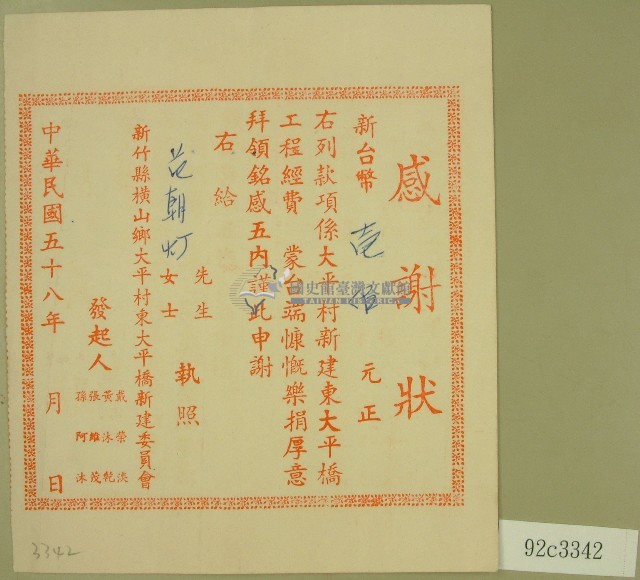 感謝狀
新台幣 壱佰 元正
右列款項係大平村新建東大平橋
工程經費 蒙台端慷慨樂捐厚意
拜領銘感五內謹此申謝
右給
范朝灯 先生 女士 執照
新竹縣橫山鄉大平村東大平橋新建委員會
發起人
戴榮
黃沐乾
張維茂
孫阿沐
中華民國五十八年 月 日
國史館臺灣文獻館
TAIWAN HISTORICA
3342
92c3342